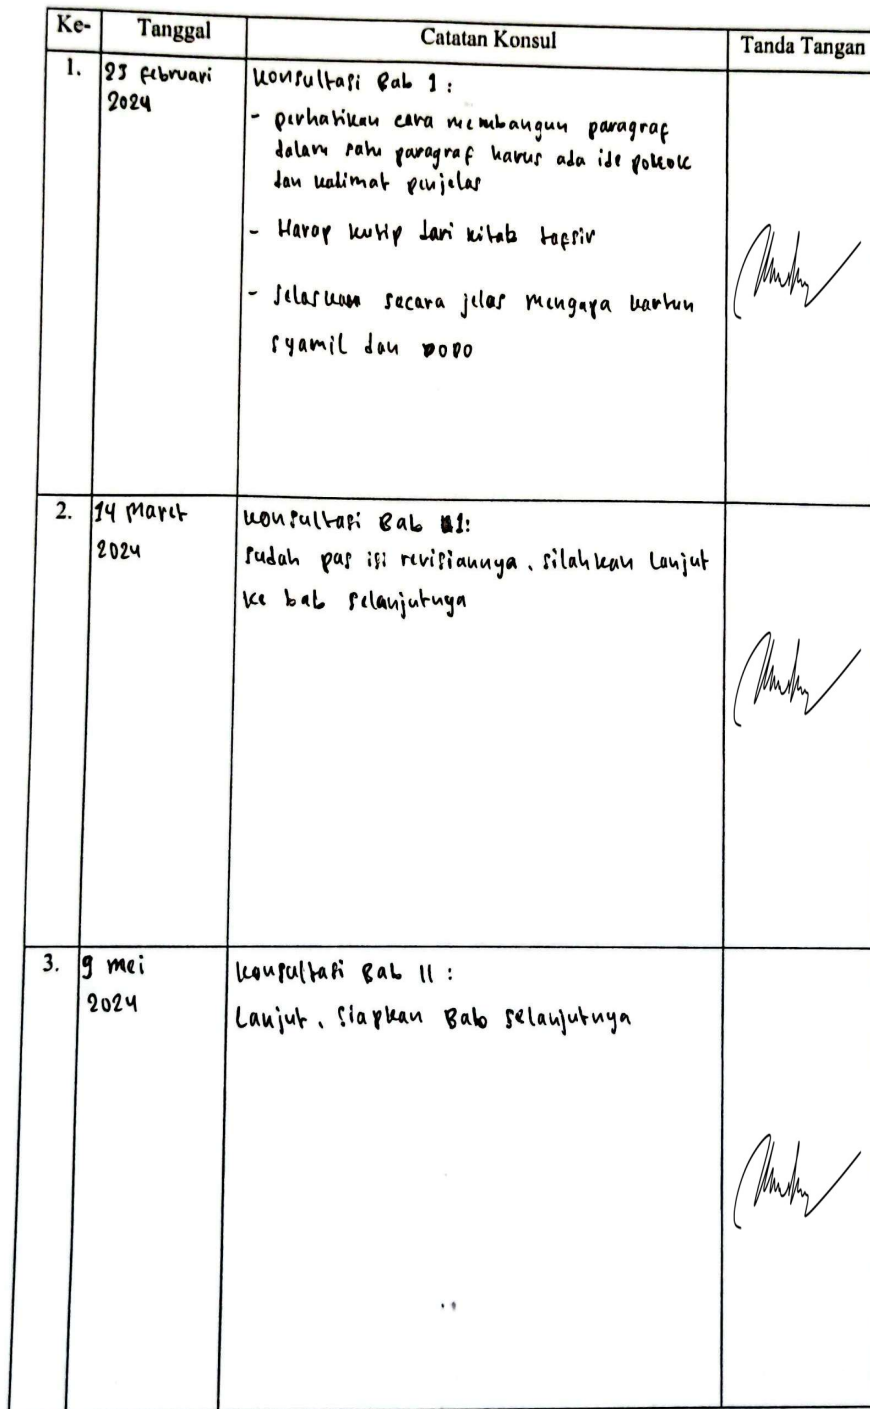 Ke- Tanggal Catatan Konsul Tanda Tangan
1. 23 februari Konsultasi Bab 1 :
2024
- perhatikan cara membangun paragraf
dalam satu paragraf harus ada ide pokok
dan kalimat penjelas
- Harap kutip dari kitab tafsir
- Jelaskan secara jelas mengapa kartun
syamil dan dodo
2. 14 Maret Konsultasi Bab 1:
2024 sudah pas isi revisiannya. silahkan lanjut
ke bab selanjutnya
3. 9 mei Konsultasi Bab II :
2024 Lanjut, siapkan Bab selanjutnya